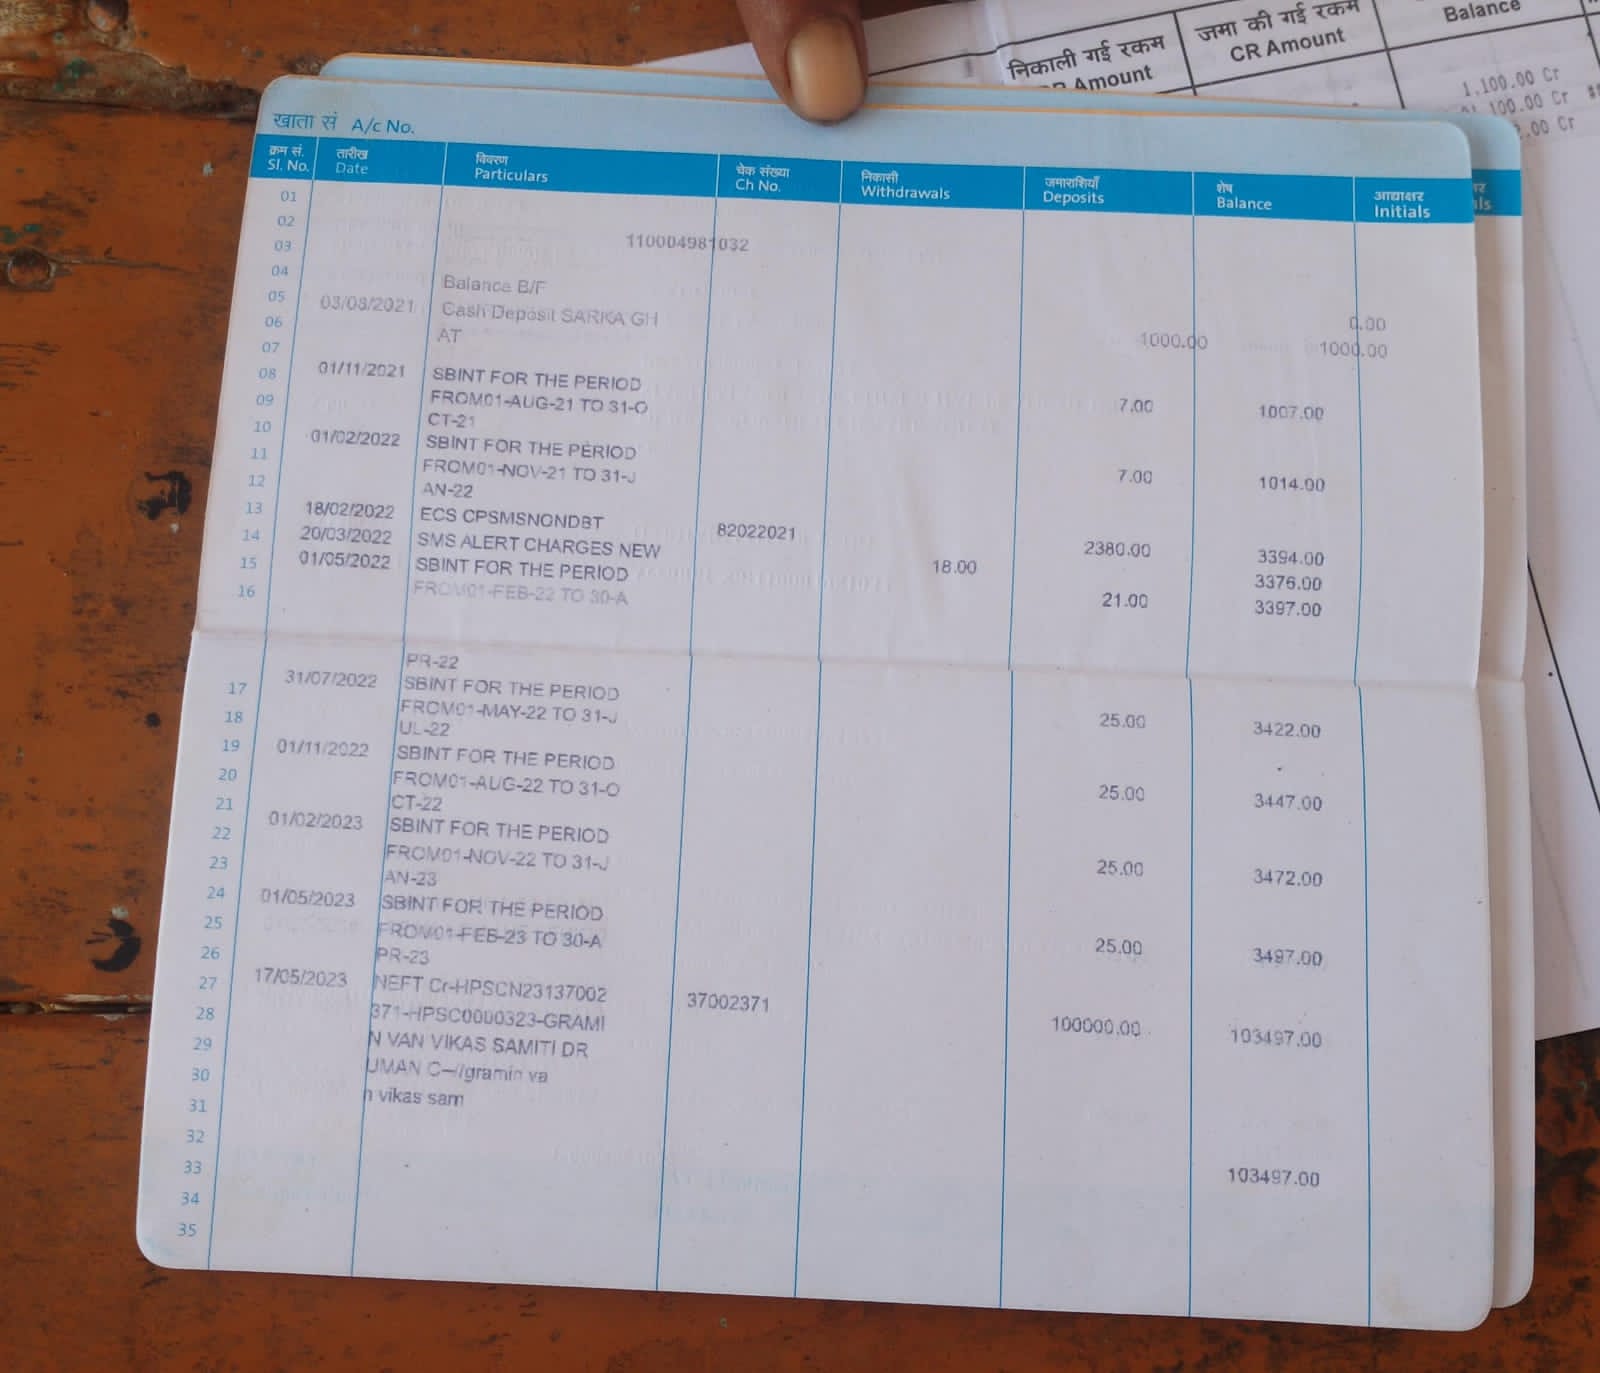 निकाली गई रकम
Amount
जमा की गई रकम
CR Amount
Balance
1,100.00 Cr
100.00 Cr
.00 Cr
खाता सं A/c No.
क्रम सं. तारीख विवरण चेक संख्या निकासी जमाराशियाँ शेष आद्याक्षर
Sl. No. Date Particulars Ch No. Withdrawals Deposits Balance Initials
01
02
03 110004981032
04
05 Balance B/F 0.00
06 03/08/2021 Cash Deposit SARKA GH 1000.00 1000.00
07 AT
08 01/11/2021 SBINT FOR THE PERIOD 7.00 1007.00
09 FROM01-AUG-21 TO 31-O
10 CT-21
11 01/02/2022 SBINT FOR THE PERIOD 7.00 1014.00
12 FROM01-NOV-21 TO 31-J
AN-22
13 18/02/2022 ECS CPSMSNONDBT 82022021 2380.00 3394.00
14 20/03/2022 SMS ALERT CHARGES NEW 18.00 3376.00
15 01/05/2022 SBINT FOR THE PERIOD 21.00 3397.00
16 FROM01-FEB-22 TO 30-A
PR-22
17 31/07/2022 SBINT FOR THE PERIOD 25.00 3422.00
18 FROM01-MAY-22 TO 31-J
UL-22
19 01/11/2022 SBINT FOR THE PERIOD 25.00 3447.00
20 FROM01-AUG-22 TO 31-O
21 CT-22
22 01/02/2023 SBINT FOR THE PERIOD 25.00 3472.00
23 FROM01-NOV-22 TO 31-J
AN-23
24 01/05/2023 SBINT FOR THE PERIOD 25.00 3497.00
25 FROM01-FEB-23 TO 30-A
26 PR-23
27 17/05/2023 NEFT Cr-HPSCN23137002 37002371 100000.00 103497.00
28 371-HPSC0000323-GRAMI
29 N VAN VIKAS SAMITI DR
30 UMAN C--//gramin va
31 n vikas sam
32
33 103497.00
34
35